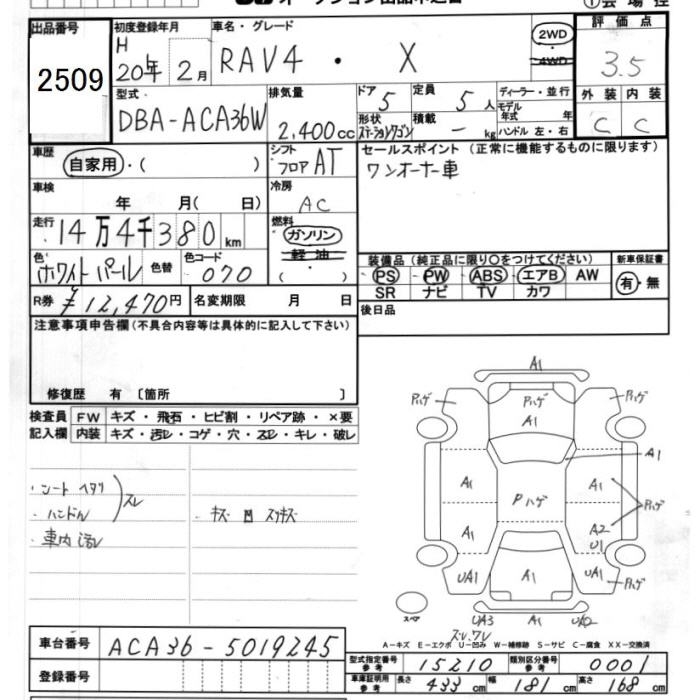 出品番号
2509
初度登録年月
H
20年 2月
車名・グレード
RAV4 ・ X
2WD
4WD
評価点
3.5
外装 内装
C C
型式
DBA-ACA36W
排気量
2,400cc
ドア
5
定員
5人
形状
ステーションワゴン
積載
- kg
ディーラー・並行
モデル
年式 年
ハンドル 左・右
車歴
自家用・( )
シフト
フロア AT
セールスポイント (正常に機能するものに限ります)
ワンオーナー車
車検
年 月( 日)
冷房
AC
走行
14万4千380km
燃料
ガソリン
軽油
・( )
色
ホワイトパール
色替
色コード
070
装備品(純正品に限り○をつけてください)
PS PW ABS エアB AW
SR ナビ TV カワ
新車保証書
有・無
R券 ¥12,470円
名変期限 月 日
後日品
注意事項申告欄(不具合内容等は具体的に記入して下さい)
修復歴 有〔箇所 〕
検査員
記入欄
FW キズ・飛石・ヒビ割・リペア跡・×要
内装 キズ・汚レ・コゲ・穴・スレ・キレ・破レ
・シートヘタリ
・ハンドル
スレ
・車内汚レ
・キズ 凹 スリキズ
A1
Pハゲ
Pハゲ
Pハゲ
A1
A1
A1
A1
Pハゲ
Pハゲ
A1
A2
U1
UA1
A1
UA1
Pハゲ
スペア
UA3
A1
UA2
ズレ、ワレ
A-キズ E-エクボ U-凹み W-補修跡 S-サビ C-腐食 XX-交換済
車台番号
ACA36-5019245
登録番号
型式指定番号
参考
15210
類別区分番号
参考
0001
車庫証明用
参考
長さ 433cm
幅 181cm
高さ 168cm